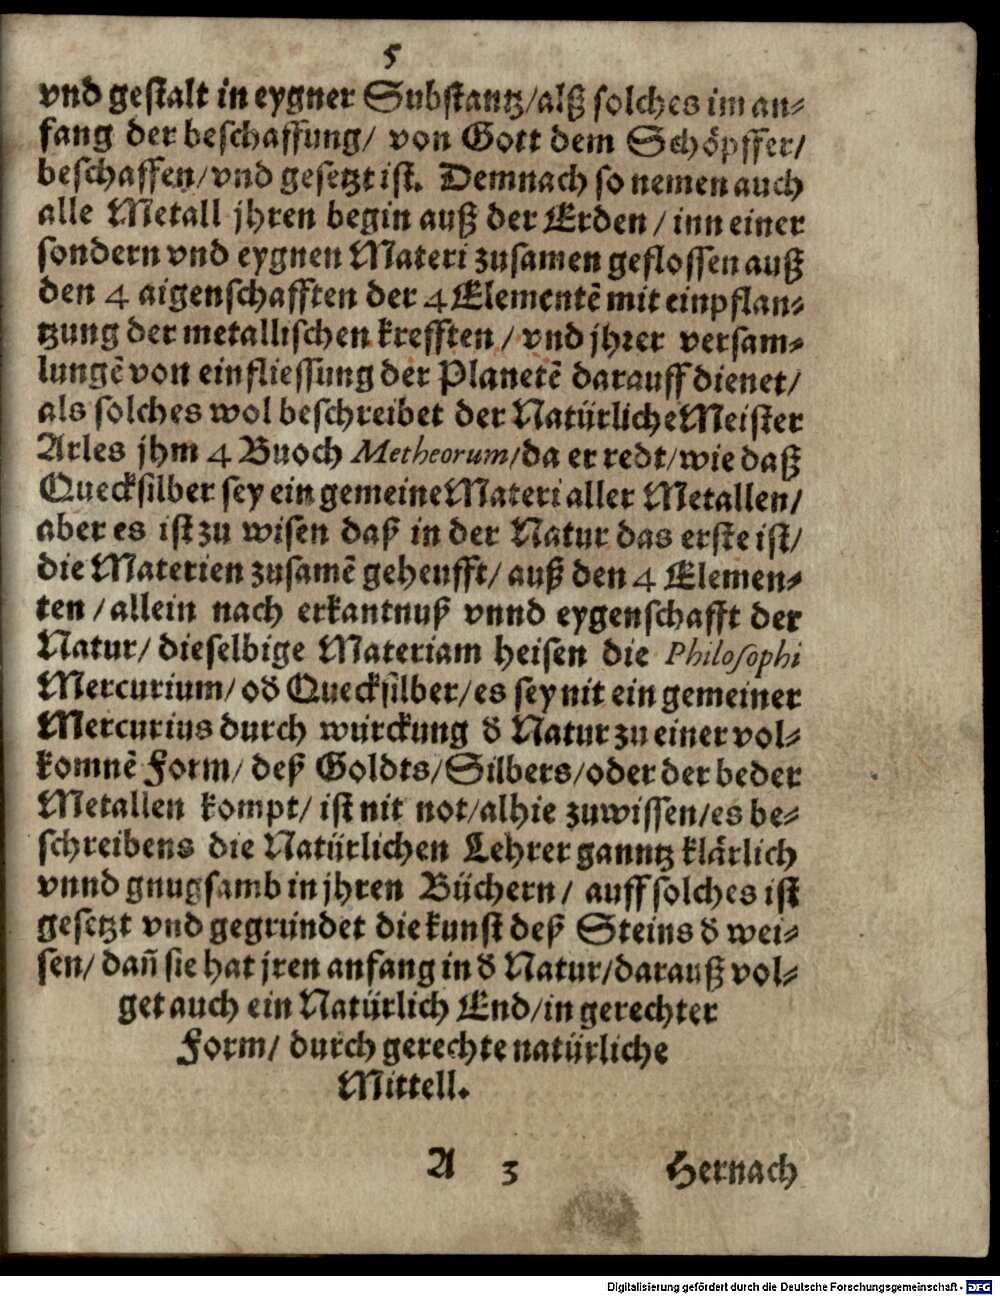 5
vnd gestalt in eygner Substantz/alß solches im an-
fang der beschaffung/ von Gott dem Schöpffer/
beschaffen/vnd gesetzt ist. Demnach so nemen auch
alle Metall jhren begin auß der Erden / inn einer
sondern vnd eygnen Materi zusamen geflossen auß
den 4 aigenschafften der 4 Elementē mit einpflan-
tzung der metallischen krefften / vnd jhrer versam-
lungē von einfliessung der Planetē darauff dienet/
als solches wol beschreibet der Natürliche Meister
Arles jhm 4 Buoch Metheorum/da er redt/wie daß
Quecksilber sey ein gemeine Materi aller Metallen/
aber es ist zu wisen daß in der Natur das erste ist/
die Materien zusamē geheufft/ auß den 4 Elemen-
ten / allein nach erkantnuß vnnd eygenschafft der
Natur/ dieselbige Materiam heisen die Philosophi
Mercurium/ od Quecksilber/es sey nit ein gemeiner
Mercurius durch würckung d Natur zu einer vol-
komnē Form/ deß Goldts/Silbers/oder der beder
Metallen kompt/ ist nit not/alhie zuwissen/es be-
schreibens die Natürlichen Lehrer ganntz klärlich
vnnd gnugsamb in jhren Büchern/ auff solches ist
gesetzt vnd gegründet die kunst deß Steins d wei-
sen/ dañ sie hat jren anfang in d Natur/darauß vol-
get auch ein Natürlich End/in gerechter
Form/ durch gerechte natürliche
Mittell.
A 3 Hernach
Digitalisierung gefördert durch die Deutsche Forschungsgemeinschaft - DFG